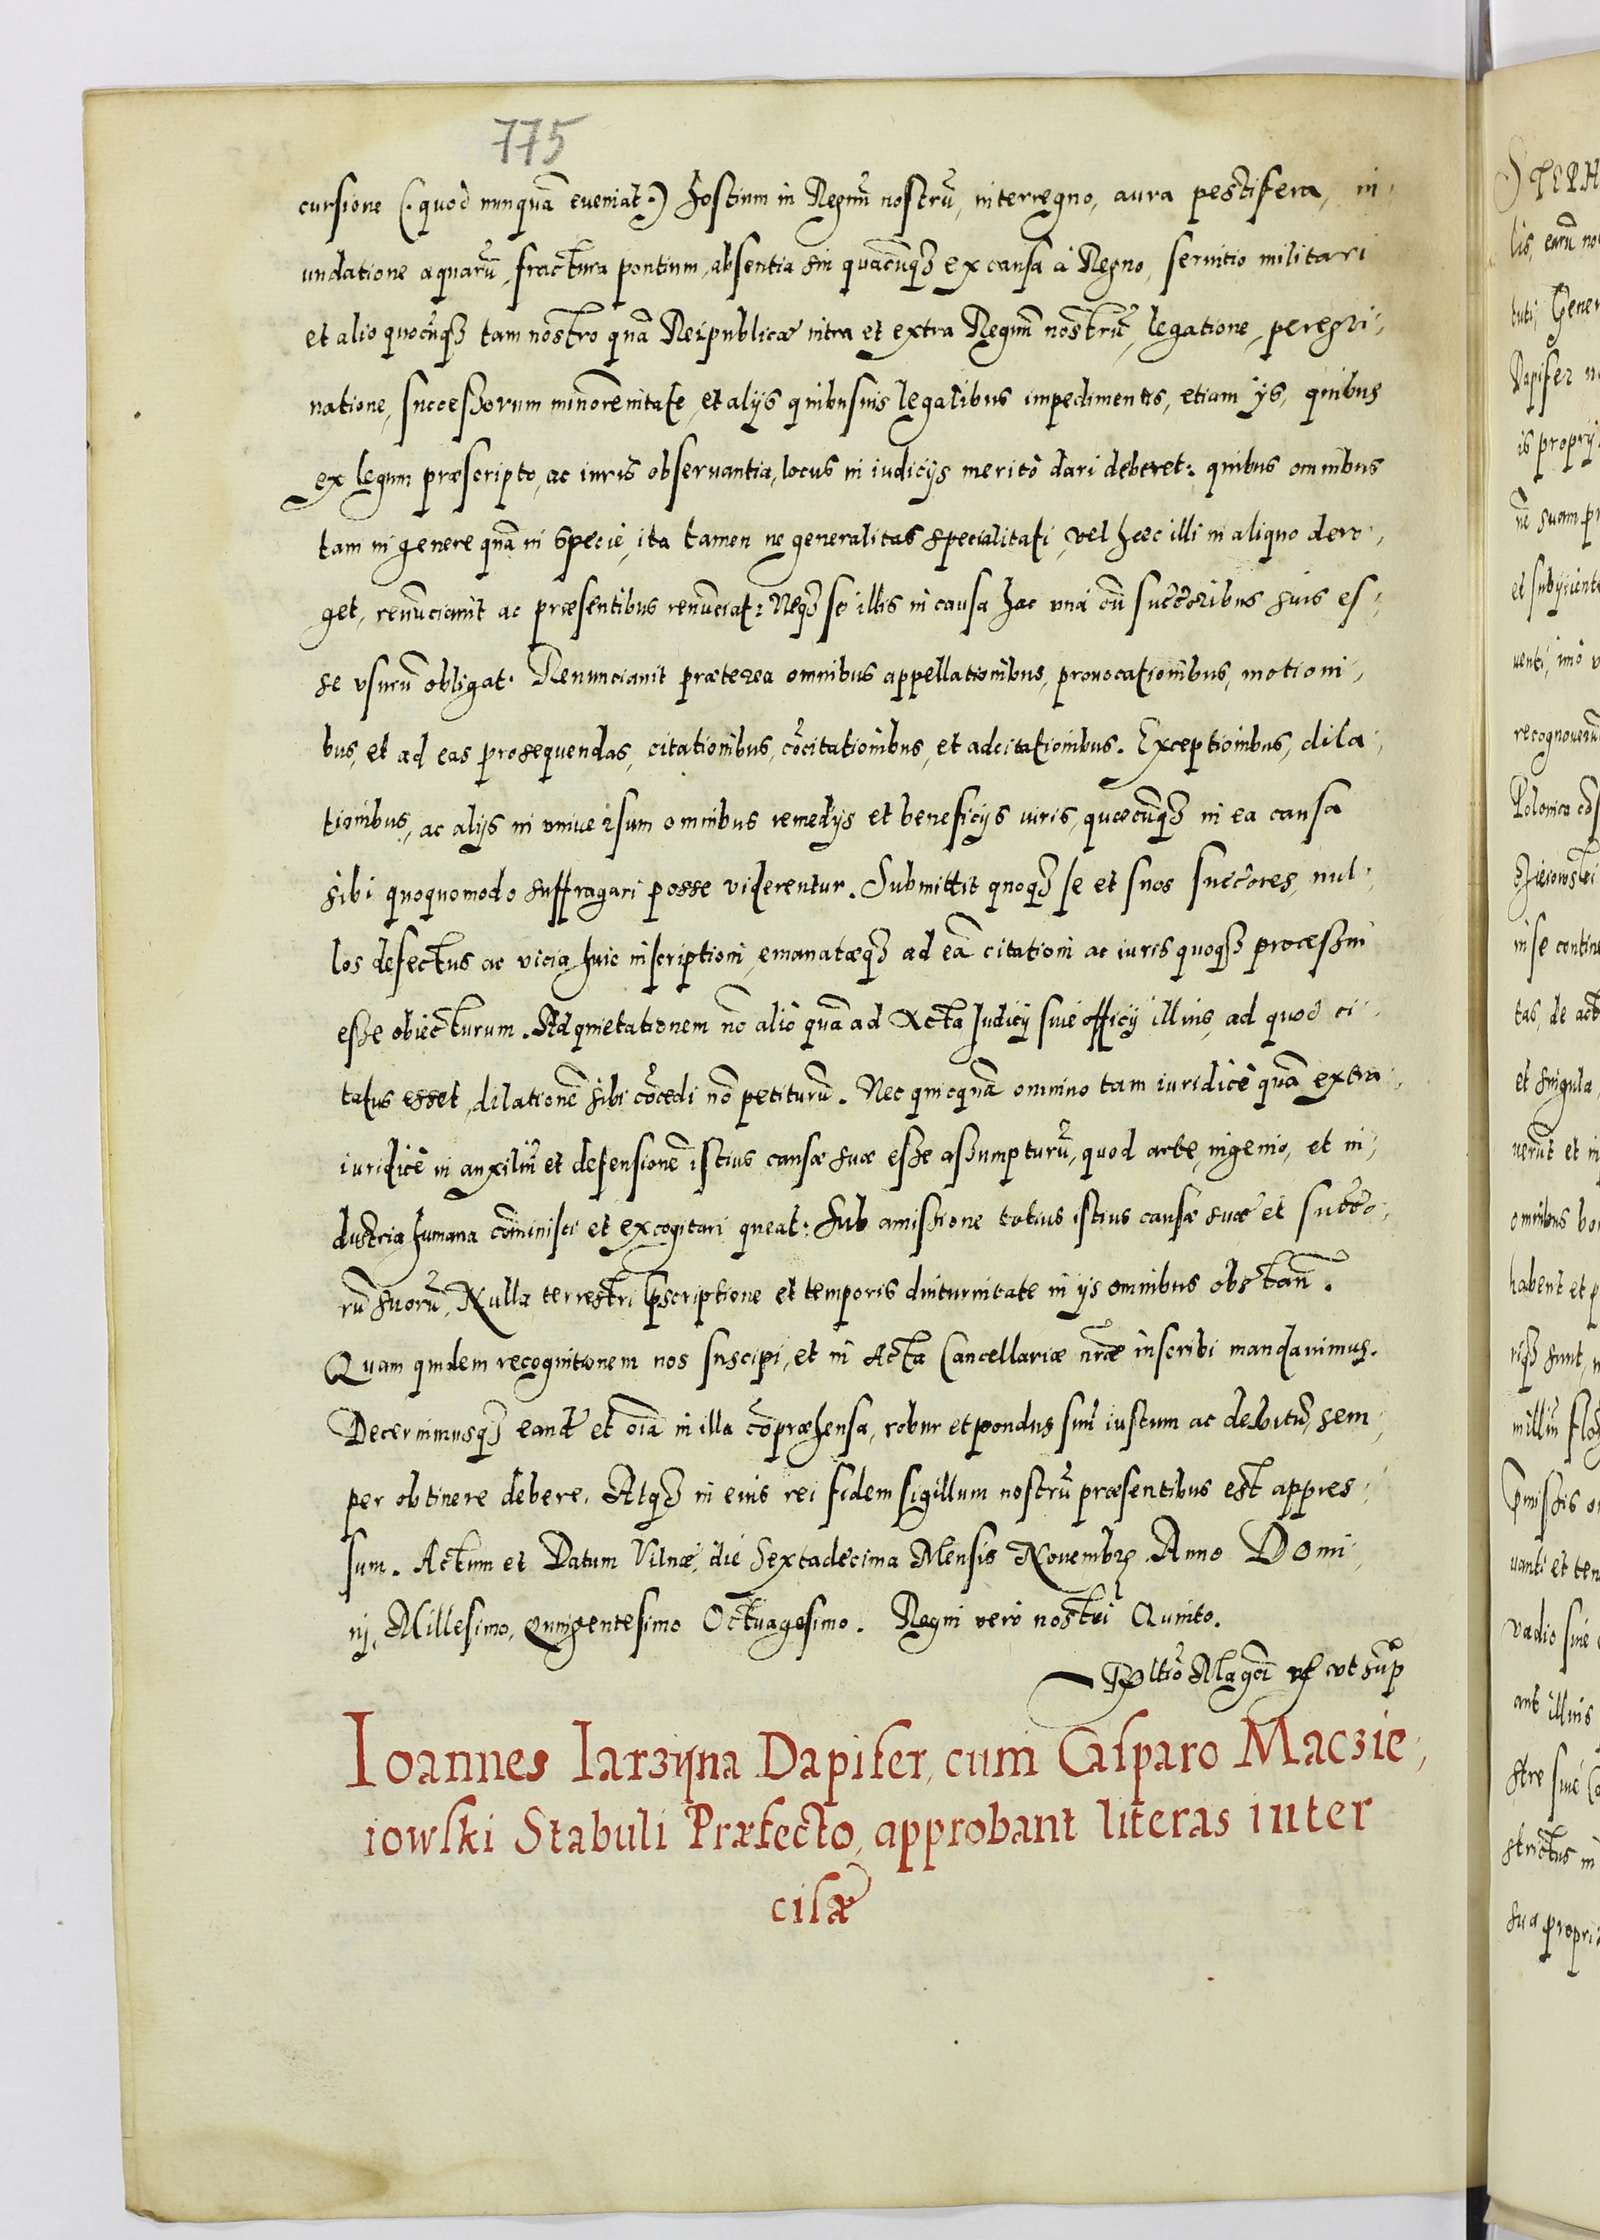 775
cursione (. quod nunquā eveniat .) hostium in Regnū nostrū, interregno, aura pestifera, in,
undatione aquarū, fractura pontium, absentia sui quacūqꝫ ex causa à Regno, seruitio militari
et alio quocūqꝫ tam nostro quā Reipublicæ intra et extra Regnū nostrū, legatione, peregri,
natione, successorum minorennitate, et alijs quibusuis legalibus impedimentis, etiam ijs, quibus
ex legum præscripto, ac iuris obseruantia, locus in iudicijs meritò dari deberet: quibus omnibus
tam in genere quā in specie, ita tamen ne generalitas specialitati, vel hæc illi in aliquo dero,
get, renūciauit ac præsentibus renūciat: Neqꝫ se illis in causa hac vnà cū succoribus suis es,
se vsurū obligat. Renunciauit præterea omnibus appellationibus, prouocationibus, motioni,
bus, et ad eas prosequendas, citationibus, cōcitationibus, et adcitationibus. Exceptionibus, dila,
tionibus, ac alijs in vniuersum omnibus remedijs et beneficijs iuris, quæcūqꝫ in ea causa
sibi quoquomodo suffragari posse viderentur. Submittit quoqꝫ se et suos succores, nul,
los defectus ac vicia huic inscriptioni, emanatæqꝫ ad eā citationi ac iuris quoqꝫ processui
esse obiecturum. Ad quietationem nō aliò quā ad Acta Iudicij siue officij illius, ad quod ci,
tatus esset, dilationē sibi cōcedi nō petiturū. Nec quicquā omnino tam iuridicè quā extra,
iuridicè in auxiliū et defensionē istius causæ suæ esse assumpturū, quod arte, ingenio, et in,
dustria humana cōminisci et excogitari queat: Sub amissione totius istius causæ suæ et succo,
rū suorū, Nulla terrestri pscriptione et temporis diuturnitate in ijs omnibus obstan̄.
Quam quidem recognitionem nos suscipi, et in Acta Cancellariæ nr̄æ inscribi mandauimus.
Decernimusqꝫ eand̄ et oīa in illa cōpræhensa, robur et pondus suū iustum ac debitū, sem,
per obtinere debere. Atqꝫ in eius rei fidem sigillum nostrū præsentibus est appres,
sum. Actum et Datum Vilnæ, die Sextadecima Mensis Nouembrꝫ. Anno Domi,
nj, Millesimo, Quingentesimo Octuagesimo. Regni verò nostri Quinto.
Rltio Magci vt sup
Ioannes Iarzyna Dapifer, cum Casparo Maczie,
iowski Stabuli Præfecto, approbant literas inter
cisæ